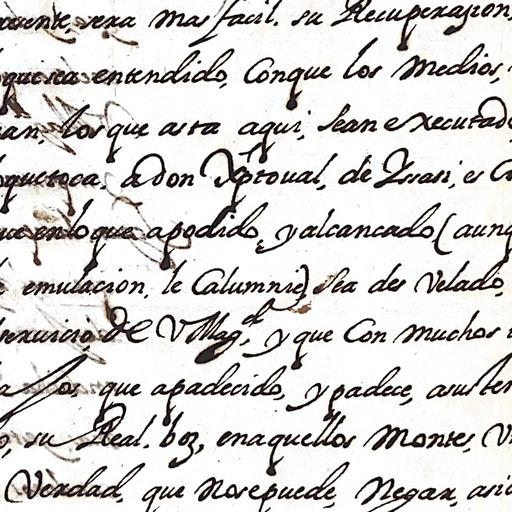 sera mas facil. su Recuperazion,
que sea entendido, Con que los medios,
los que asta aqui, sean executad
que toca, a don Xptoual, de Yssasi, es
en lo que a podido, y alcancado (aunq
emulacion, le Calumnie) sea des velado,
seruicio, de V Magd, y que Con muchos
que a padecido, y padece, a susten
su Real. boz, en aquellos Montes, V
Verdad, que no se puede, Negar, asi